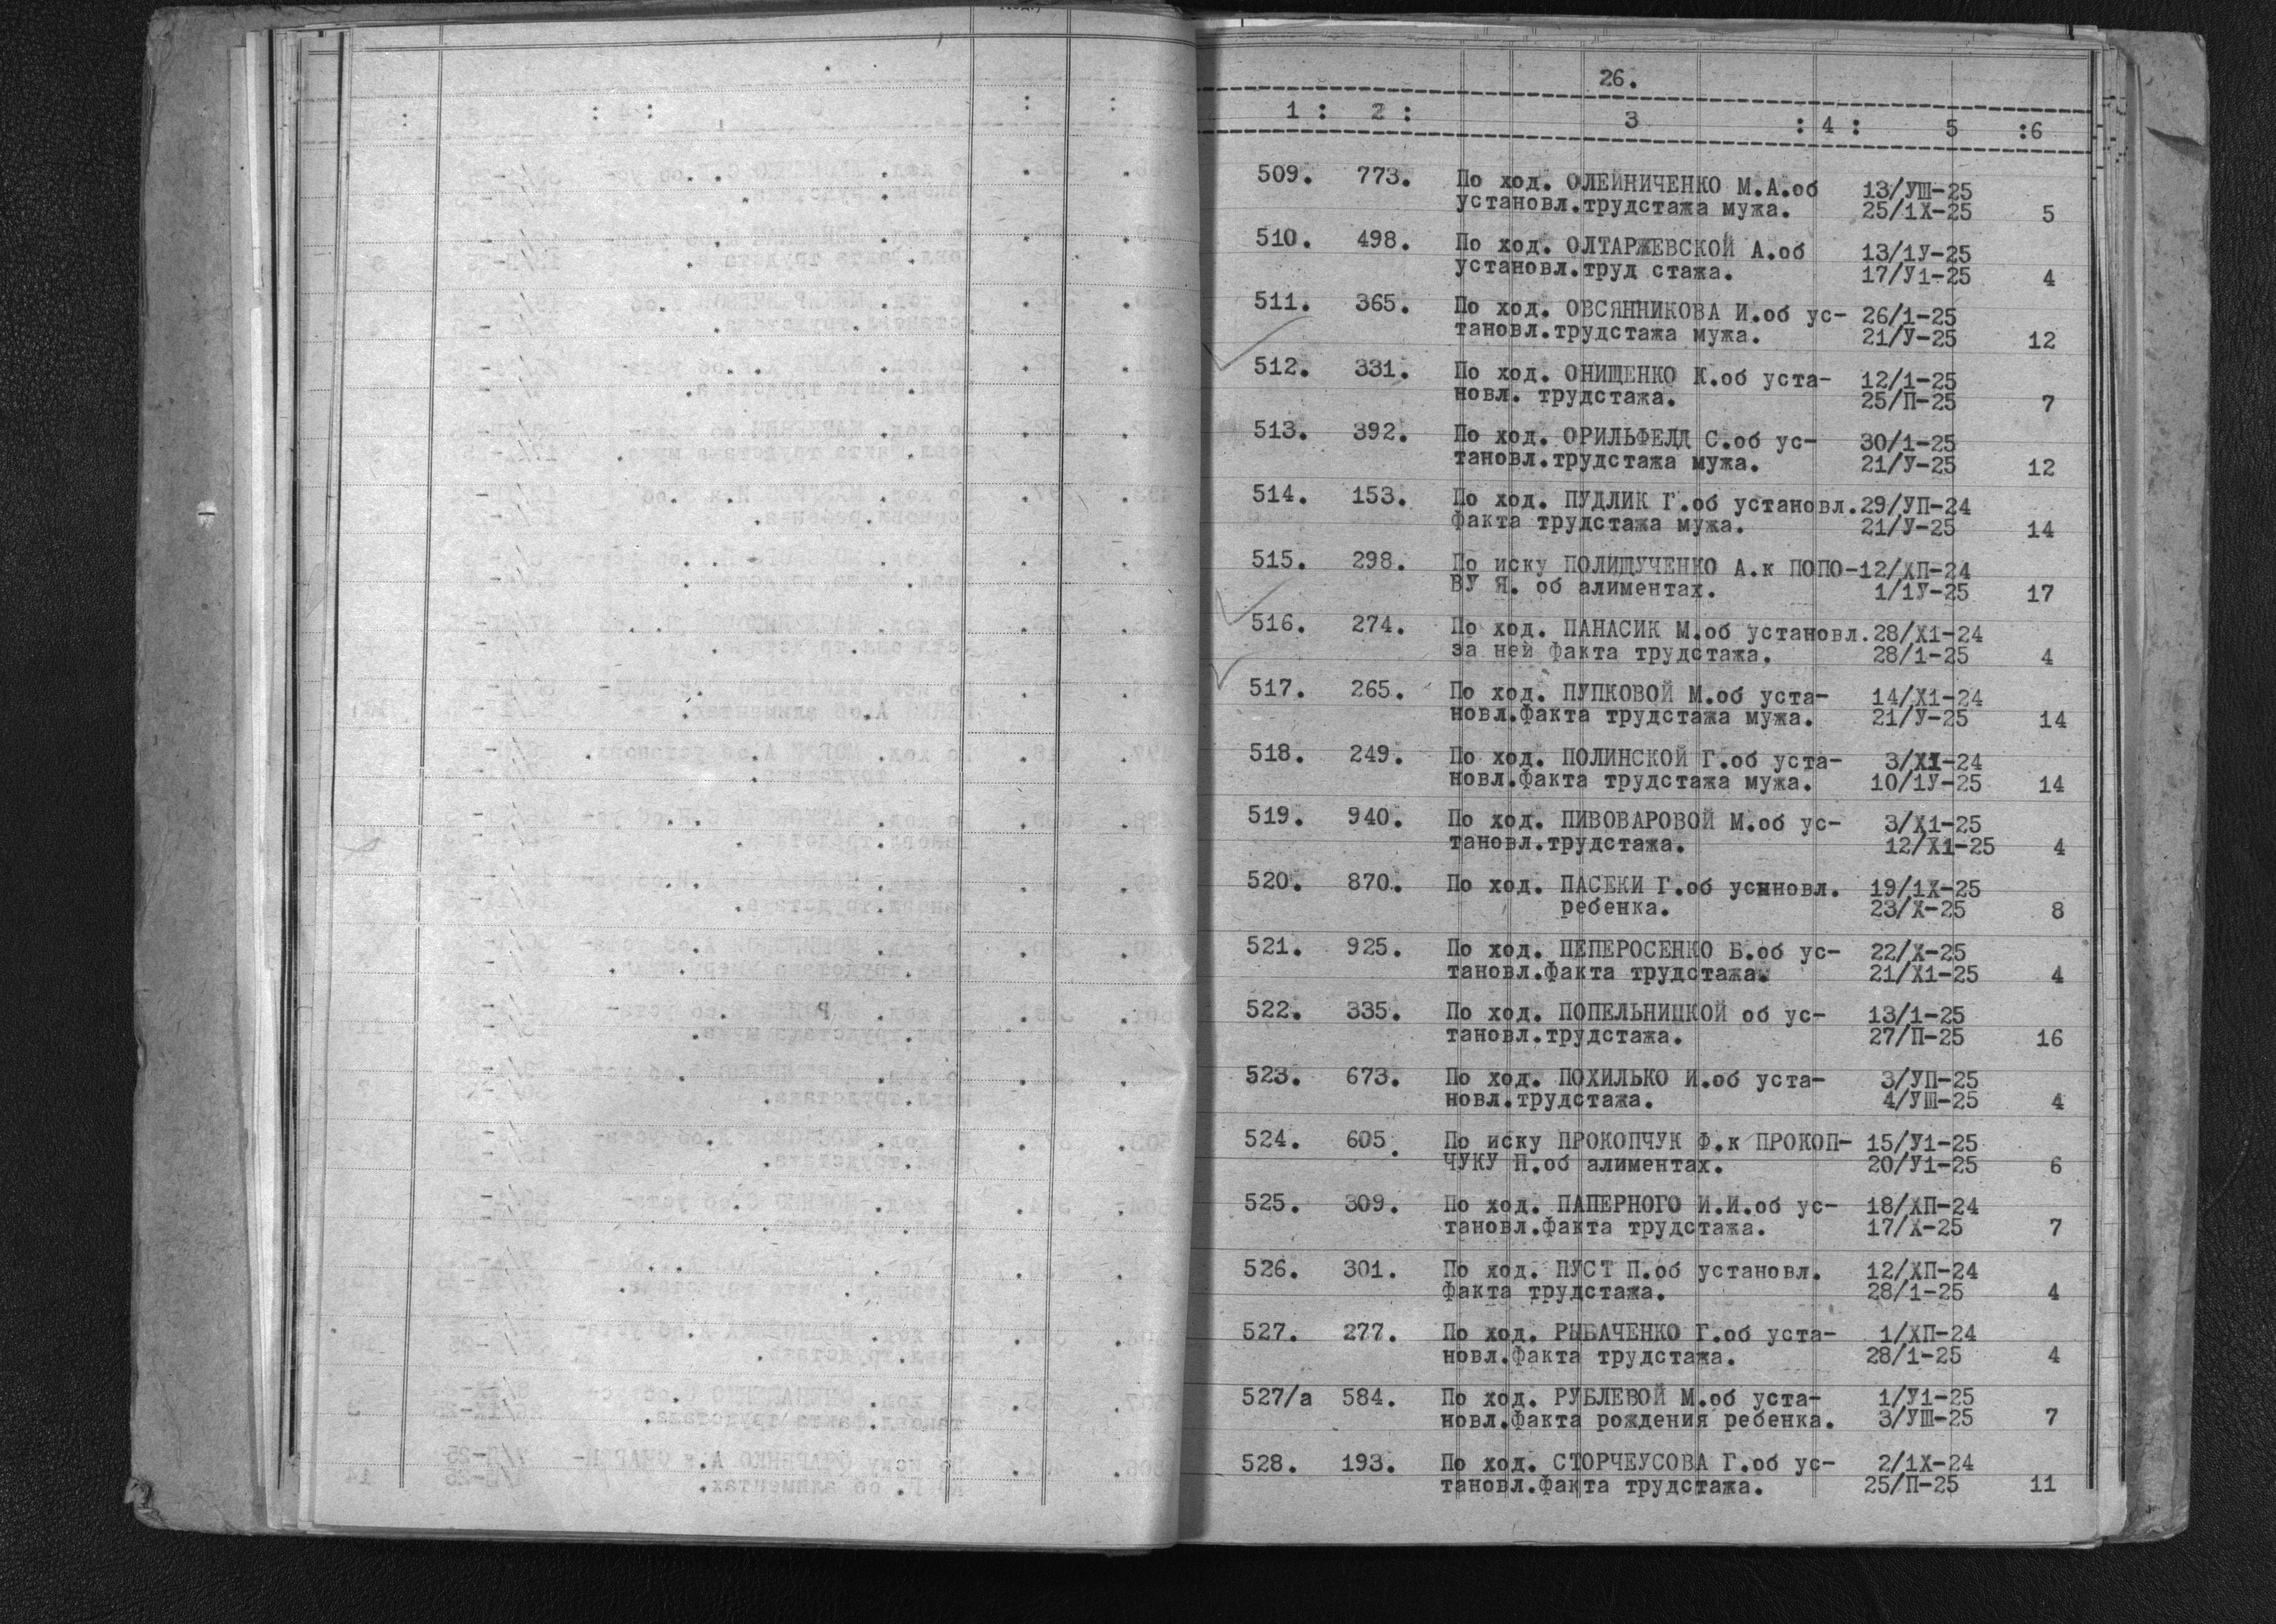 26.
1 : 2 : 3 : 4 : 5 :6
509. 773. По ход. ОЛЕЙНИЧЕНКО М.А.об 13/УШ-25
установл.трудстажа мужа. 25/1Х-25 5
510. 498. По ход. ОЛТАРЖЕВСКОЙ А.об 13/1У-25
установл.труд стажа. 17/У1-25 4
511. 365. По ход. ОВСЯННИКОВА И.об ус- 26/1-25
тановл.трудстажа мужа. 21/У-25 12
512. 331. По ход. ОНИЩЕНКО К.об уста- 12/1-25
новл. трудстажа. 25/П-25 7
513. 392. По ход. ОРИЛЬФЕЛД С.об ус- 30/1-25
тановл.трудстажа мужа. 21/У-25 12
514. 153. По ход. ПУДЛИК Г.об установл.29/УП-24
факта трудстажа мужа. 21/У-25 14
515. 298. По иску ПОЛИЩУЧЕНКО А.к ПОПО-12/ХП-24
ВУ Я. об алиментах. 1/1У-25 17
516. 274. По ход. ПАНАСИК М.об установл.28/Х1-24
за ней факта трудстажа. 28/1-25 4
517. 265. По ход. ПУПКОВОЙ М.об уста- 14/Х1-24
новл.факта трудстажа мужа. 21/У-25 14
518. 249. По ход. ПОЛИНСКОЙ Г.об уста- 3/Х1-24
новл.факта трудстажа мужа. 10/1У-25 14
519. 940. По ход. ПИВОВАРОВОЙ М.об ус- 3/Х1-25
тановл.трудстажа. 12/Х1-25 4
520. 870. По ход. ПАСЕКИ Г.об усыновл. 19/1Х-25
ребенка. 23/Х-25 8
521. 925. По ход. ПЕПЕРОСЕНКО Б.об ус- 22/Х-25
тановл.факта трудстажа. 21/Х1-25 4
522. 335. По ход. ПОПЕЛЬНИЦКОЙ об ус- 13/1-25
тановл.трудстажа. 27/П-25 16
523. 673. По ход. ПОХИЛЬКО И.об уста- 3/УП-25
новл.трудстажа. 4/УШ-25 4
524. 605. По иску ПРОКОПЧУК Ф.к ПРОКОП- 15/У1-25
ЧУКУ Н.об алиментах. 20/У1-25 6
525. 309. По ход. ПАПЕРНОГО И.И.об ус- 18/ХП-24
тановл.факта трудстажа. 17/Х-25 7
526. 301. По ход. ПУСТ П.об установл. 12/ХП-24
факта трудстажа. 28/1-25 4
527. 277. По ход. РЫБАЧЕНКО Г.об уста- 1/ХП-24
новл.факта трудстажа. 28/1-25 4
527/а 584. По ход. РУБЛЕВОЙ М.об уста- 1/У1-25
новл.факта рождения ребенка. 3/УШ-25 7
528. 193. По ход. СТОРЧЕУСОВА Г.об ус- 2/1Х-24
тановл.факта трудстажа. 25/П-25 11